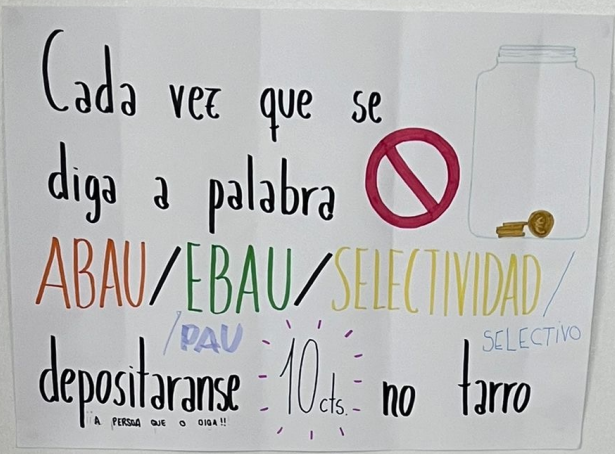 Cada vez que se
diga a palabra
ABAU/EBAU/SELECTIVIDAD/
/PAU
SELECTIVO
depositaranse 10 cts. no tarro
¡¡A PERSOA QUE O DIGA!!